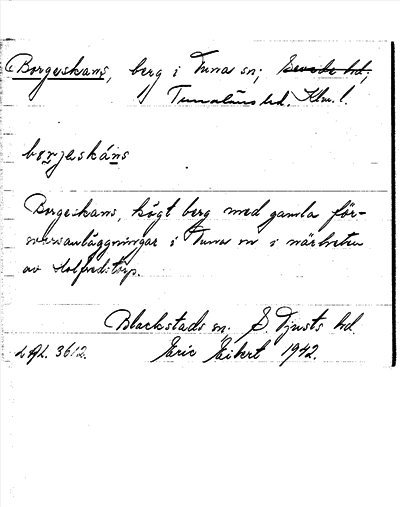 Borgeskans, berg i Tuna sn; Sevede hd;
Tunaläns hd. Klm. l.
borgeskáns
Borgeskans, högt berg med gamla för-
svarsanläggningar i Tuna sn i närheten
av Holfredstorp.
Blackstads sn. S. Tjusts hd.
3612. Eric Eikert 1942.